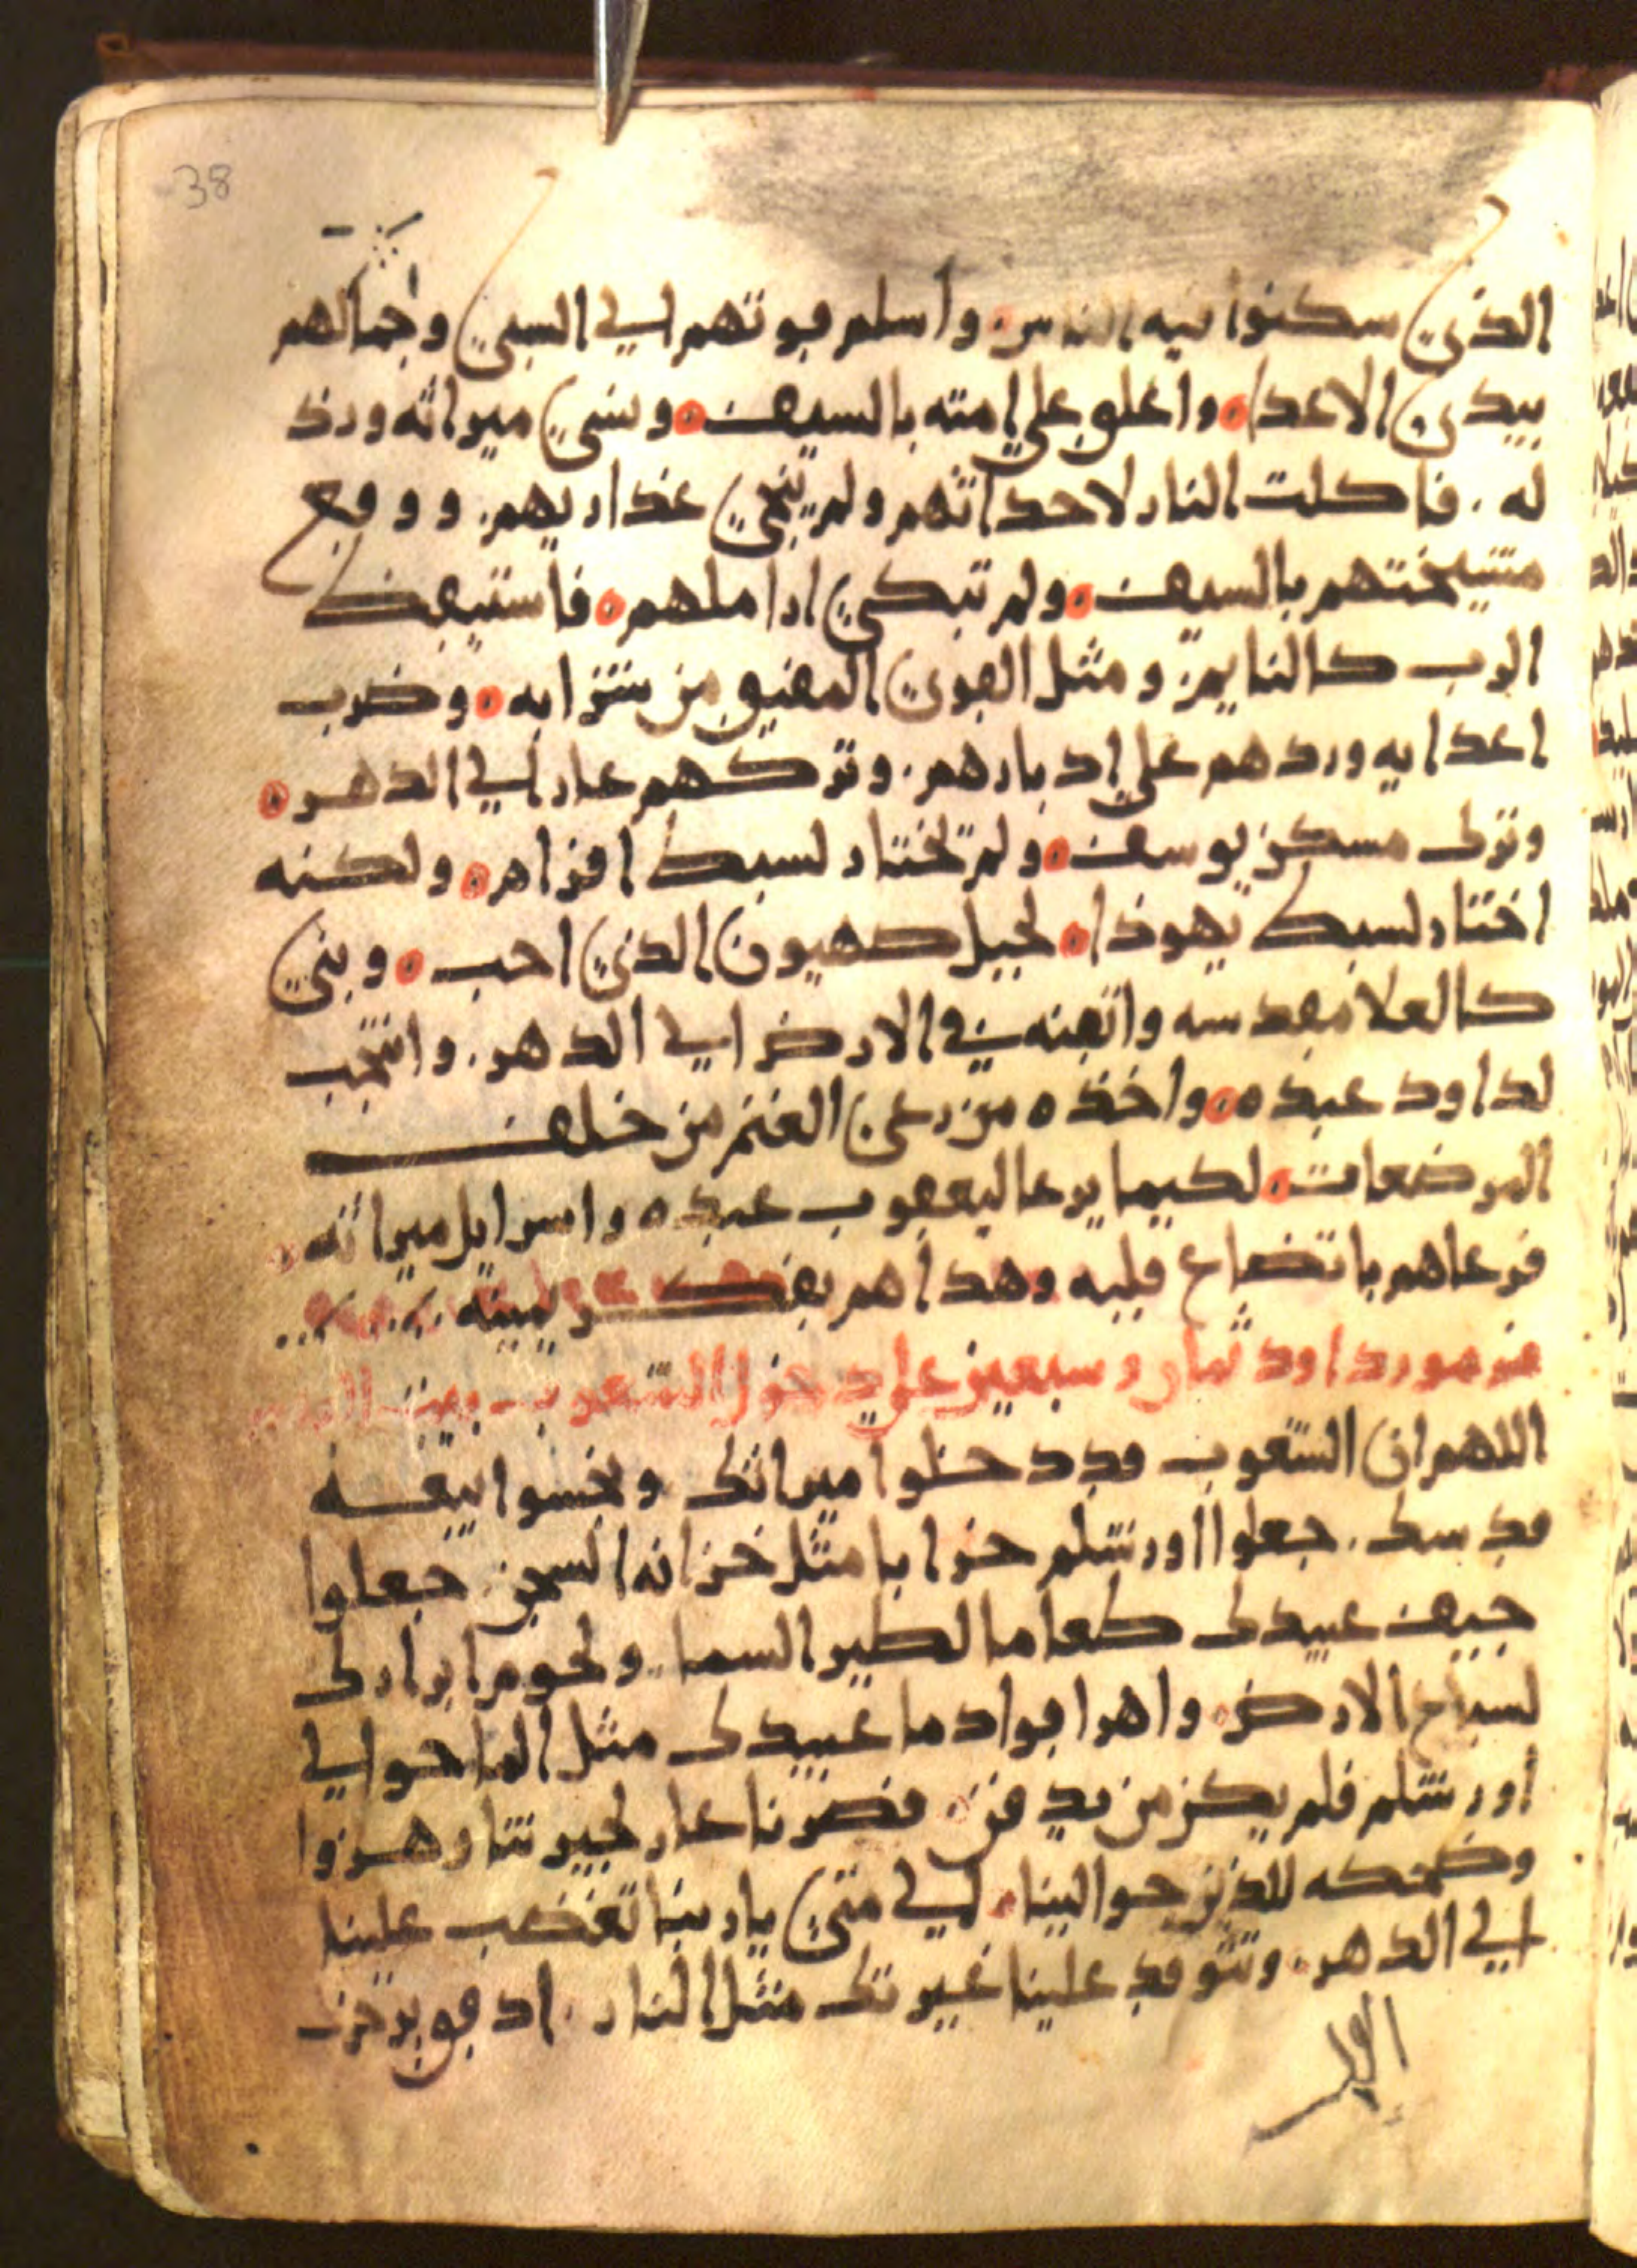 38
الذي سكنوا فيه الناس واسلم قوتهم الي السبي وجمالهم
بيدي الاعدا واغلق علي امته بالسيف ونسي ميراثه ورذ
له . فاكلت النار لاحداثهم ولم ينحي عذاريهم . ووقع
مشيختهم بالسيف ولم تبكي اراملهم فاستيقض
الرب كالنايم ومثل القوي المفيق من شرابه وضرب
اعدايه وردهم علي ادبارهم . وتركهم عار الي الدهر
وترك مسكن يوسف ولم يختار لسبط افرام ولكنه
اختار لسبط يهوذا لجبل صهيون الذي احب وبني
كالعلا مقدسه واتقنه في الارض الي الدهر . وانتجب
لداود عبده واخذه من رعي الغنم من خلف
المرضعات لكيما يرعا ليعقوب عبده واسرايل ميراثه
فرعاهم باتضاع قلبه وهداهم بفكر يمينه
مزمور داود ثمان وسبعين علي دخول الشعوب بيت
اللهم ان الشعوب قد دخلوا ميراثك ونجسوا بيعه
قدسك . جعلوا اورشلم خرابا مثل خزانه السجن . جعلوا
جيف عبيدك طعاما لطير السما . ولحوم ابرارك
لسباع الارض واهراقوا دما عبيدك مثل الما حوالي
اورشلم فلم يكن من يدفن . فصرنا عار لجيرننا وهزوا
وضحكه للذين حوالينا الي متي يا ربنا تغضب علينا
الي الدهر . وتتوقد علينا غيرتك مثل النار . ادفق برجزك